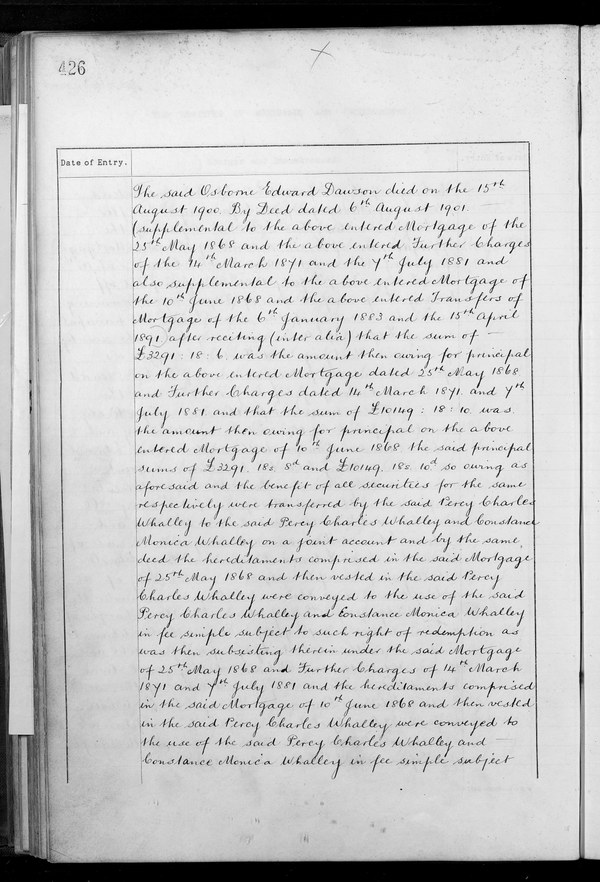 426
Date of Entry.
The said Osborne Edward Dawson died on the 15th
August 1900. By Deed dated 6th August 1901
(supplemental to the above entered Mortgage of the
25th May 1868 and the above entered Further Charges
of the 14th March 1871 and the 7th July 1881 and
also supplemental to the above entered Mortgage of
the 10th June 1868 and the above entered Transfers of
Mortgage of the 6th January 1883 and the 15th April
1891) after reciting (inter alia) that the sum of —
£3291 : 18 : 6 was the amount then owing for principal
on the above entered Mortgage dated 25th May 1868
and Further Charges dated 14th March 1871 and 7th
July 1881 and that the sum of £10149 : 18 : 10 was
the amount then owing for principal on the above
entered Mortgage of 10th June 1868 the said principal
sums of £3291. 18s. 8d and £10149. 18s. 10d so owing as
aforesaid and the benefit of all securities for the same
respectively were transferred by the said Percy Charles
Whalley to the said Percy Charles Whalley and Constance
Monica Whalley on a joint account and by the same
deed the hereditaments comprised in the said Mortgage
of 25th May 1868 and then vested in the said Percy
Charles Whalley were conveyed to the use of the said
Percy Charles Whalley and Constance Monica Whalley
in fee simple subject to such right of redemption as
was then subsisting therein under the said Mortgage
of 25th May 1868 and Further Charges of 14th March
1871 and 7th July 1881 and the hereditaments comprised
in the said Mortgage of 10th June 1868 and then vested
in the said Percy Charles Whalley were conveyed to
the use of the said Percy Charles Whalley and —
Constance Monica Whalley in fee simple subject